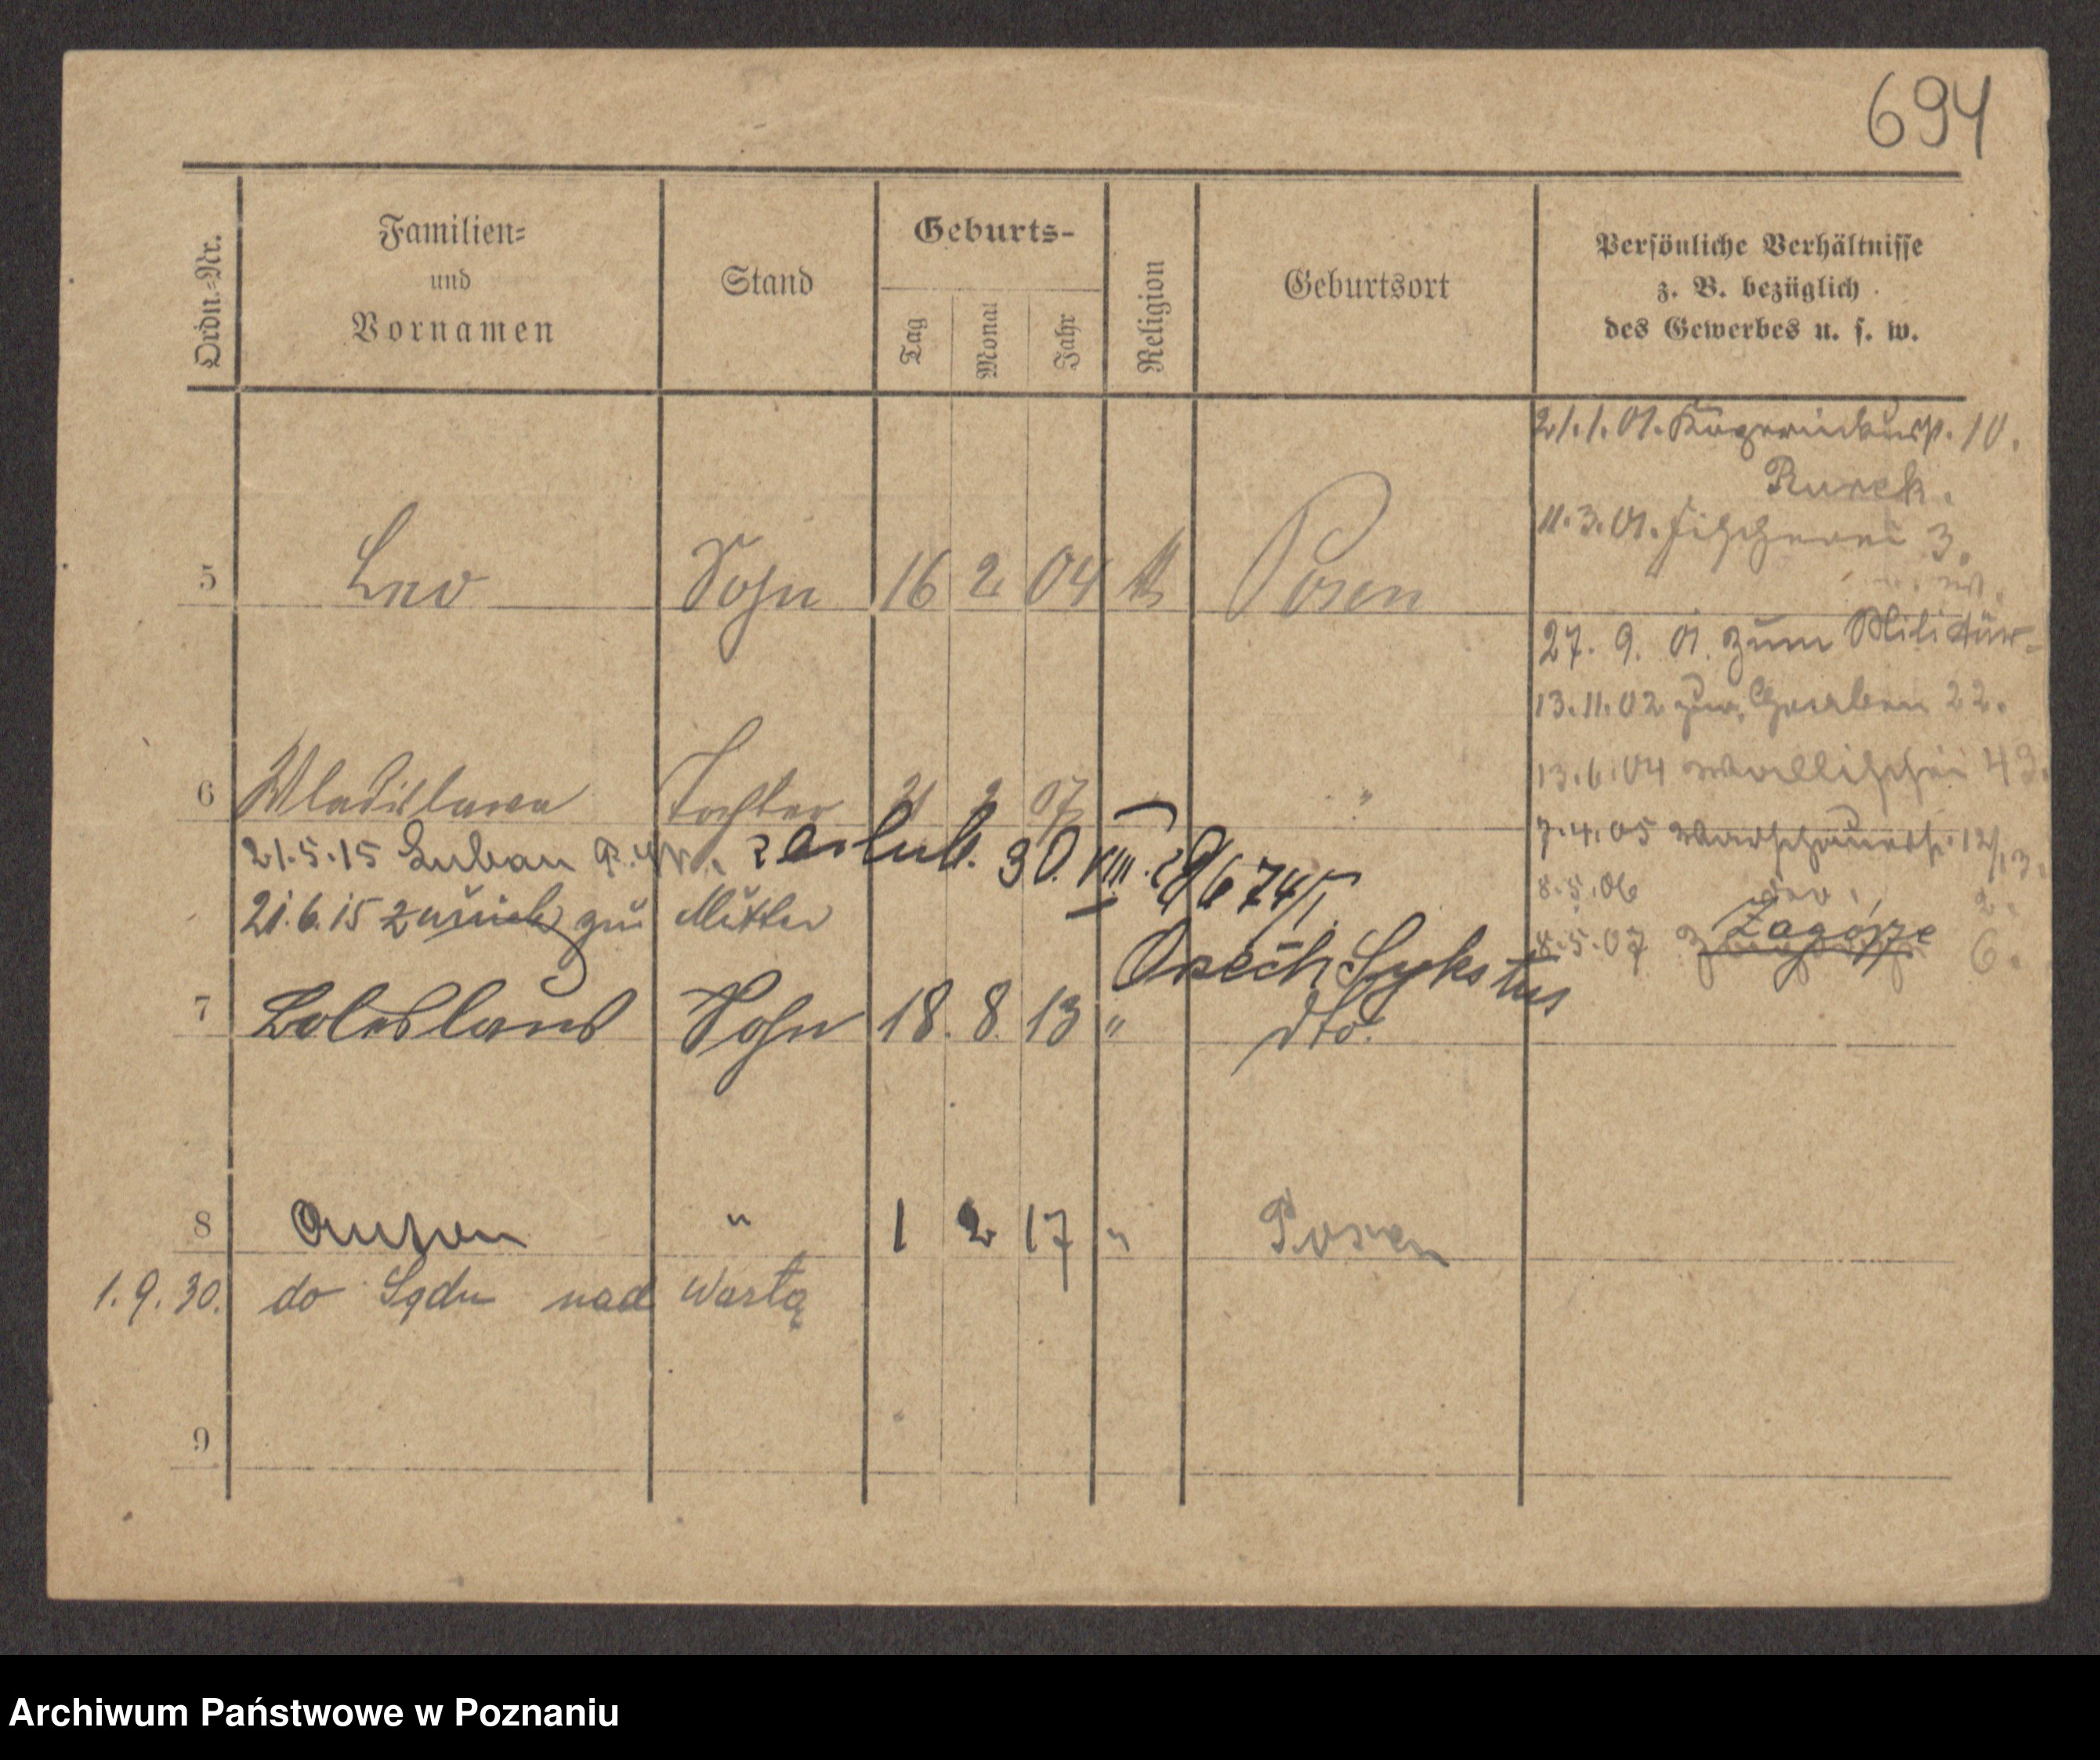 694
Ordn.=Nr.
Familien=
und
Vornamen
Stand
Geburts-
Tag
Monat
Jahr
Religion
Geburtsort
Persönliche Verhältnisse
z. B. bezüglich
des Gewerbes u. s. w.
21.1.01. 10.
11.3.01. Fischerei 3.
5 Leo Sohn 16 2 04 Posen
27. 9. 01. zum Militär
13.11.02 zur. Gerben 22.
13.6.04 Wallischei 43.
6 Wladislawa Tochter 21 2 07 "
7.4.05 Warschauerstr. 12/13.
21.5.15 Luban zaślub. 30.VIII.
8.5.06 2.
21.6.15 zurück zur Mutter
8.5.07 Zagórze 6.
Orzech Sykstus
7 Boleslaus Sohn 18. 8. 13 " dto.
8 Anton " 1 2 17 " Posen
1.9.30. do nad Wartą
9
Archiwum Państwowe w Poznaniu